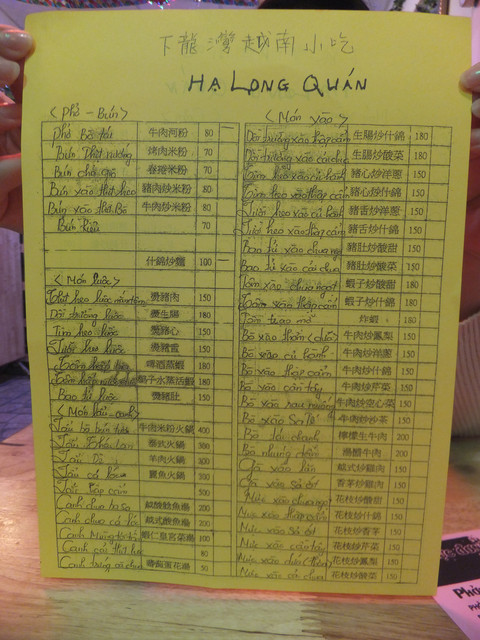 下龍灣越南小吃
HẠ LONG QUÁN
<Phở - Bún>
Phở Bò tái 牛肉河粉 80
Bún thịt nướng 烤肉米粉 70
Bún chả giò 春捲米粉 70
Bún xào thịt heo 豬肉炒米粉 80
Bún xào thịt Bò 牛肉炒米粉 80
Bún 70
什錦炒麵 100
<Món luộc>
燙豬肉 150
Dồi trường luộc 燙生腸 180
Tim heo luộc 燙豬心 150
Lưỡi heo luộc 燙豬舌 150
啤酒蒸蝦 180
椰子水蒸活蝦 180
Bao tử luộc 燙豬肚 150
<Món lẩu - canh>
牛肉米粉火鍋 400
Lẩu Thái Lan 泰式火鍋 300
Lẩu Dê 羊肉火鍋 300
Lẩu cá 鱻魚火鍋 300
Lẩu thập cẩm 500
Canh chua 酸鮭魚湯 200
Canh chua cá lóc 200
蝦仁皇宮菜湯 100
Canh cải thịt 80
50
<Món xào>
Dồi trường xào thập cẩm 生腸炒什錦 180
Dồi trường xào cải chua 生腸炒酸菜 180
Tim heo xào củ hành 豬心炒洋蔥 150
Tim heo xào thập cẩm 豬心炒什錦 150
Lưỡi heo xào củ hành 豬舌炒洋蔥 150
Lưỡi heo xào thập cẩm 豬舌炒什錦 150
Bao tử xào chua ngọt 豬肚炒酸甜 150
Bao tử xào cải chua 豬肚炒酸菜 150
Tôm xào chua ngọt 蝦子炒酸甜 180
Tôm xào thập cẩm 蝦子炒什錦 150
炸蝦 180
Bò xào thơm (dứa) 牛肉炒鳳梨 150
Bò xào củ hành 牛肉炒洋蔥 150
Bò xào thập cẩm 牛肉炒什錦 150
Bò xào cần tây 牛肉炒芹菜 150
Bò xào rau muống 牛肉炒空心菜 150
Bò xào Sa tế 牛肉炒沙茶 150
Bò tái chanh 檸檬生牛肉 200
Bò nhúng dấm 涮醋牛肉 200
Gà xào 鹹式炒雞肉 150
Gà xào Sả ớt 香茅炒雞肉 150
Mực xào chua ngọt 花枝炒酸甜 150
Mực xào thập cẩm 花枝炒什錦 150
Mực xào Sả ớt 花枝炒香茅 150
Mực xào cần tây 花枝炒芹菜 150
Mực xào dứa (thơm) 花枝炒鳳梨 150
Mực xào cải chua 花枝炒酸菜 150